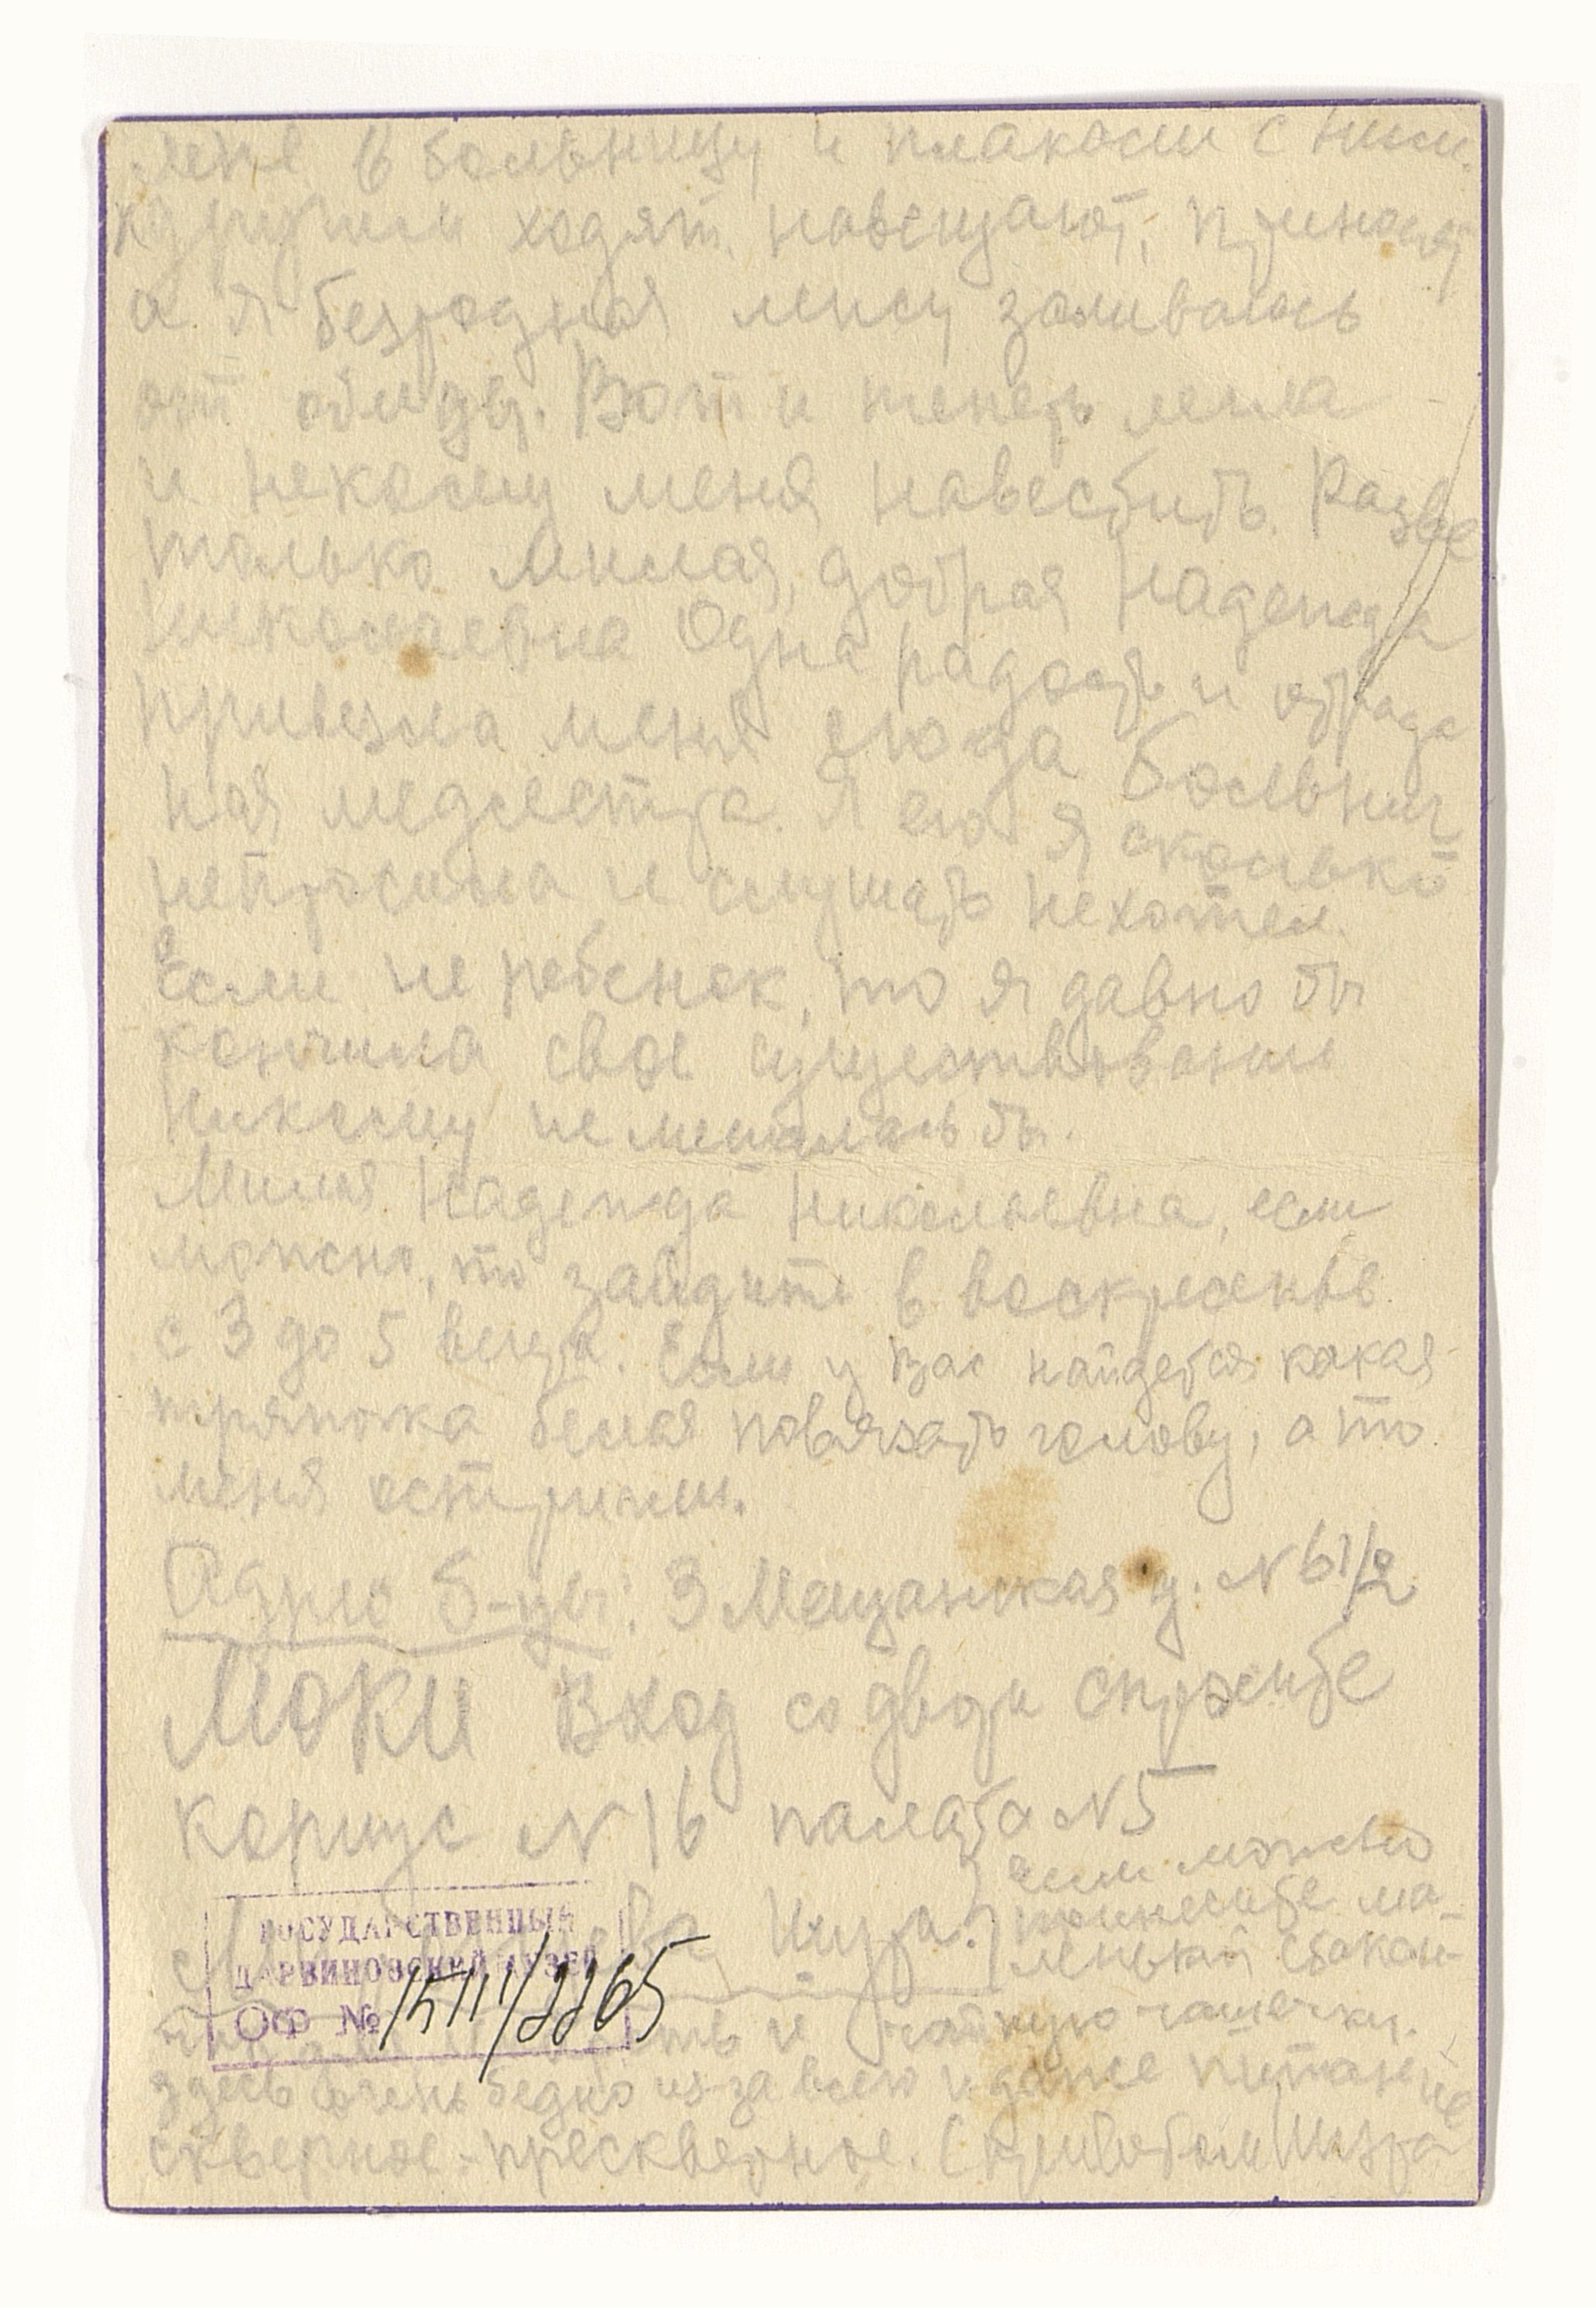 меня в больницу и плакали с ними.
ходят, навещают, приносят
а я безродная лежу заливаюсь
от обиды. Вот и теперь легла
и некому меня навестить. Разве
только милая, добрая Надежда
Николаевна Одна радость и отрада
привезла меня сюда больнич
ная медсестра. Я его я сколько
непросила и слушать нехотел.
Если не ребенок, то я давно бы
кончила свое существование
никому не мешалась бы.
Милая Надежда Николаевна, если
можно, то зайдите в воскресенье
с 3 до 5 вечера. Если у Вас найдется какая
тряпочка белая повязать голову, а то
меня остригли.
Адрес б-цы: 3 Мещанская д. № 61/2
МОКИ Вход со двора спросите
корпус № 16 палата № 5
Шура.
если можно
принесите ма-
ленький стакан-
и чайную чашечку.
здесь очень бедно из-за всего и даже питание
скверное-прескверное. С приветом Шура
ГОСУДАРСТВЕННЫЙ
ДАРВИНОВСКИЙ МУЗЕЙ
Оф №